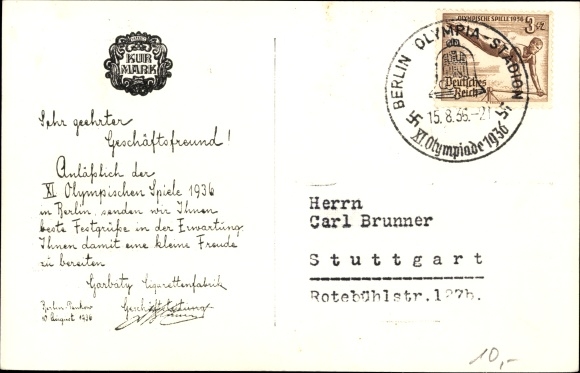 KUR
MARK
Sehr geehrter
Geschäftsfreund!
Anläßlich der
XI. Olympischen Spiele 1936
in Berlin senden wir Ihnen
beste Festgrüße in der Erwartung
Ihnen damit eine kleine Freude
zu bereiten
Garbaty Cigarettenfabrik
Geschäftsleitung
Berlin-Pankow
10 August 1936
OLYMPISCHE SPIELE 1936
3+2
Deutsches
Reich
BERLIN OLYMPIA-STADION
15.8.36.-21
XI. Olympiade 1936
Herrn
Carl Brunner
Stuttgart
Rotebühlstr.
10,-